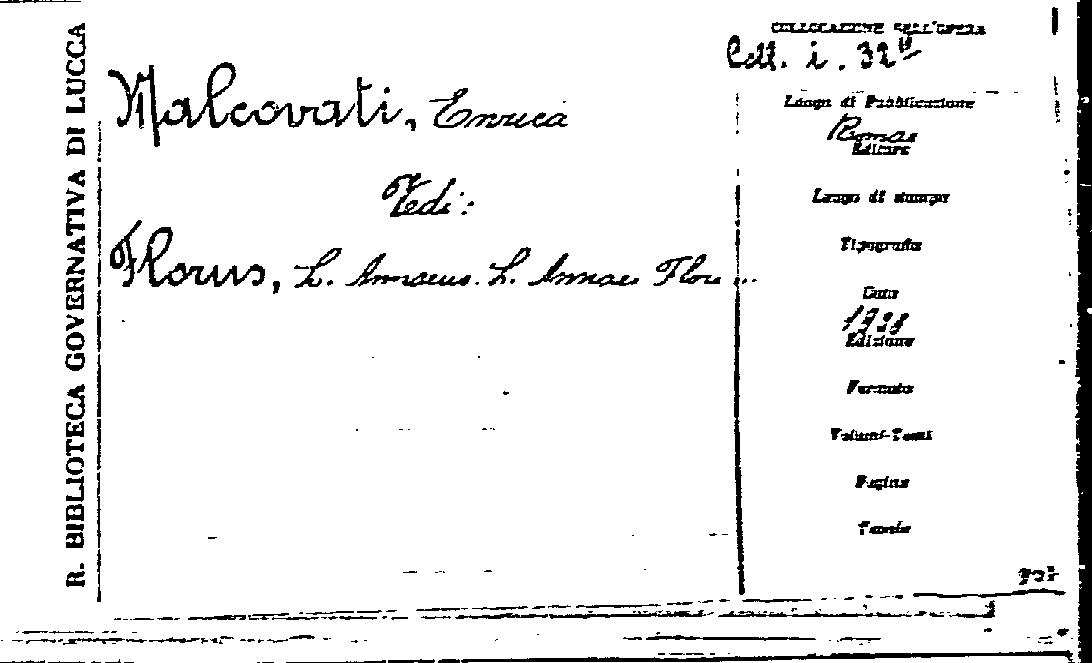 R. BIBLIOTECA GOVERNATIVA DI LUCCA
Malcovati, Enrica
Vedi:
Florus, L. Annaeus. L. Annaei Flori ...
COLLOCAZIONE DELL'OPERA
Coll. i. 32
Luogo di Pubblicazione
Romae
Editore
Luogo di stampa
Tipografia
Data
1938
Edizione
Formato
Volumi-Tomi
Pagine
Tavole